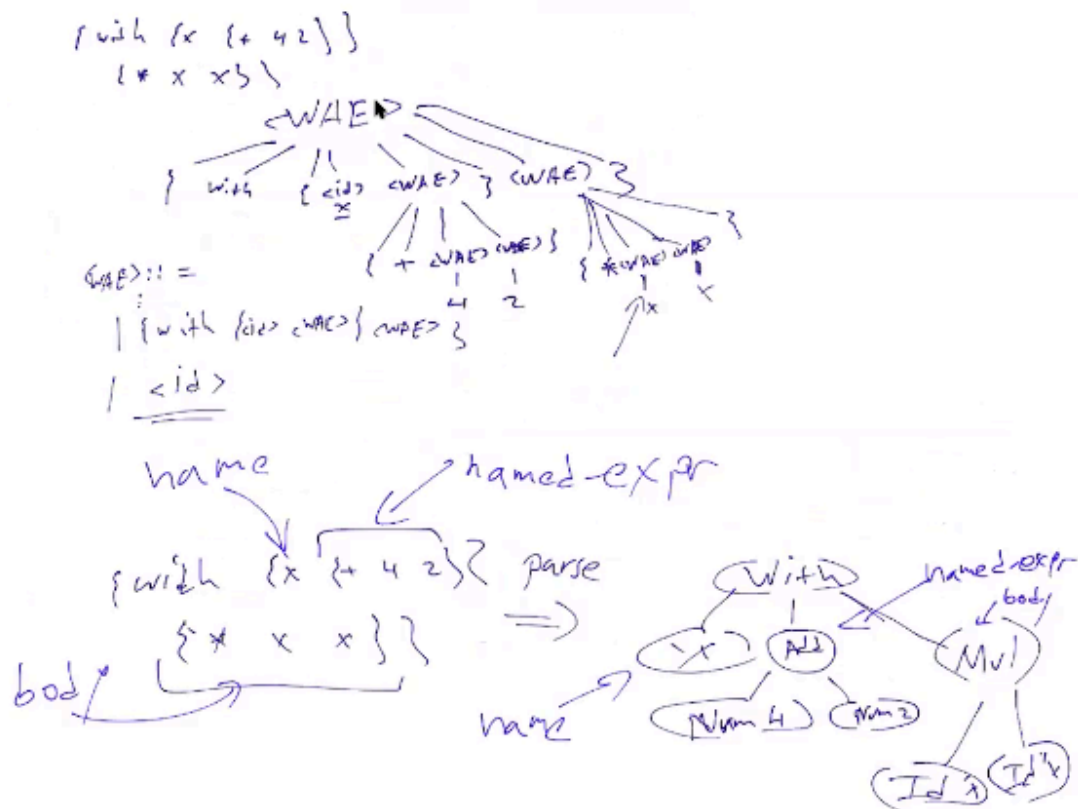 {with {x {+ 4 2}}
{* x x}}
<WAE>
{ with { <id> <WAE> } <WAE> }
x
{ + <WAE> <WAE> } { * <WAE> <WAE> }
4 2 x x
<WAE>::=
| {with {<id> <WAE>} <WAE>}
| <id>
name named-expr
{with {x {+ 4 2}} parse
{* x x}}
body
With named-expr
body
'x Add Mul
name Num 4 Num 2
Id 'x Id 'x